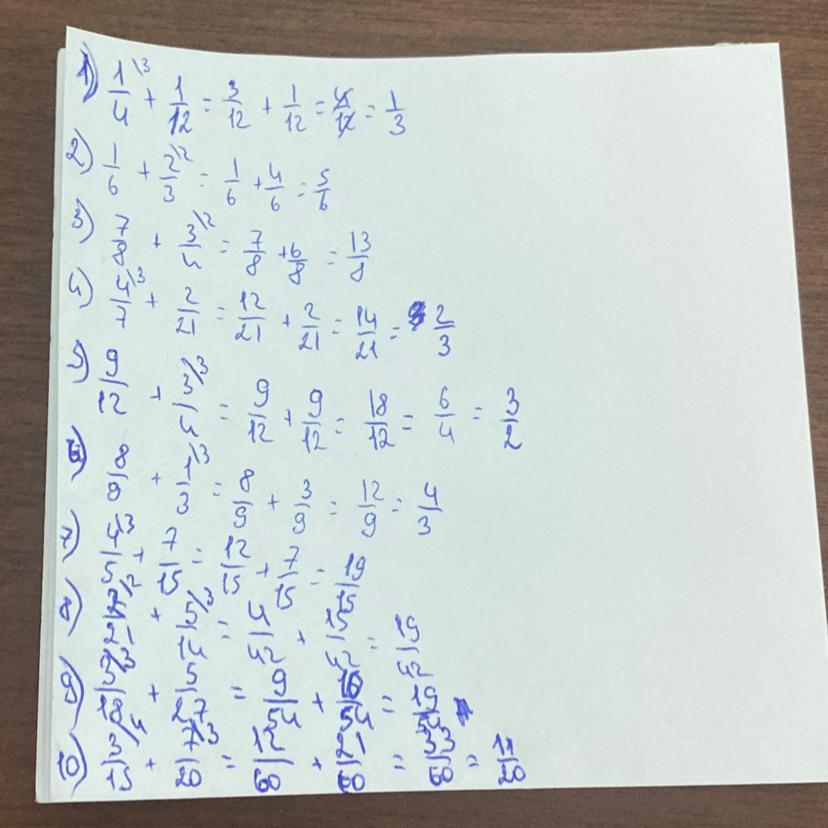 1) 1/4 \3 + 1/12 = 3/12 + 1/12 = 4/12 = 1/3
2) 1/6 + 2/3 \2 = 1/6 + 4/6 = 5/6
3) 7/8 + 3/4 \2 = 7/8 + 6/8 = 13/8
4) 4/7 \3 + 2/21 = 12/21 + 2/21 = 14/21 = 2/3
5) 9/12 + 3/4 \3 = 9/12 + 9/12 = 18/12 = 6/4 = 3/2
6) 8/9 + 1/3 \3 = 8/9 + 3/9 = 12/9 = 4/3
7) 4/5 \3 + 7/15 = 12/15 + 7/15 = 19/15
8) 2/21 \2 + 5/14 \3 = 4/42 + 15/42 = 19/42
9) 3/18 \3 + 5/27 = 9/54 + 10/54 = 19/54
10) 3/15 \4 + 7/20 \3 = 12/60 + 21/60 = 33/60 = 11/20